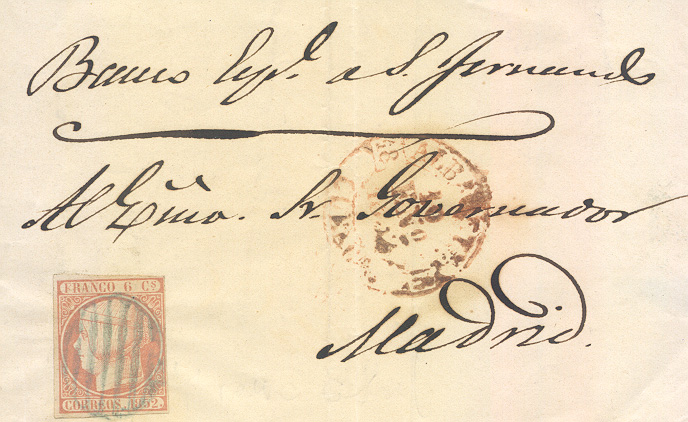 Banco Esp.l de S. Fernando
Al Exmo. Sr. Governador
ALB
Madrid.
FRANCO 6 Cs
CORREOS. 1852.